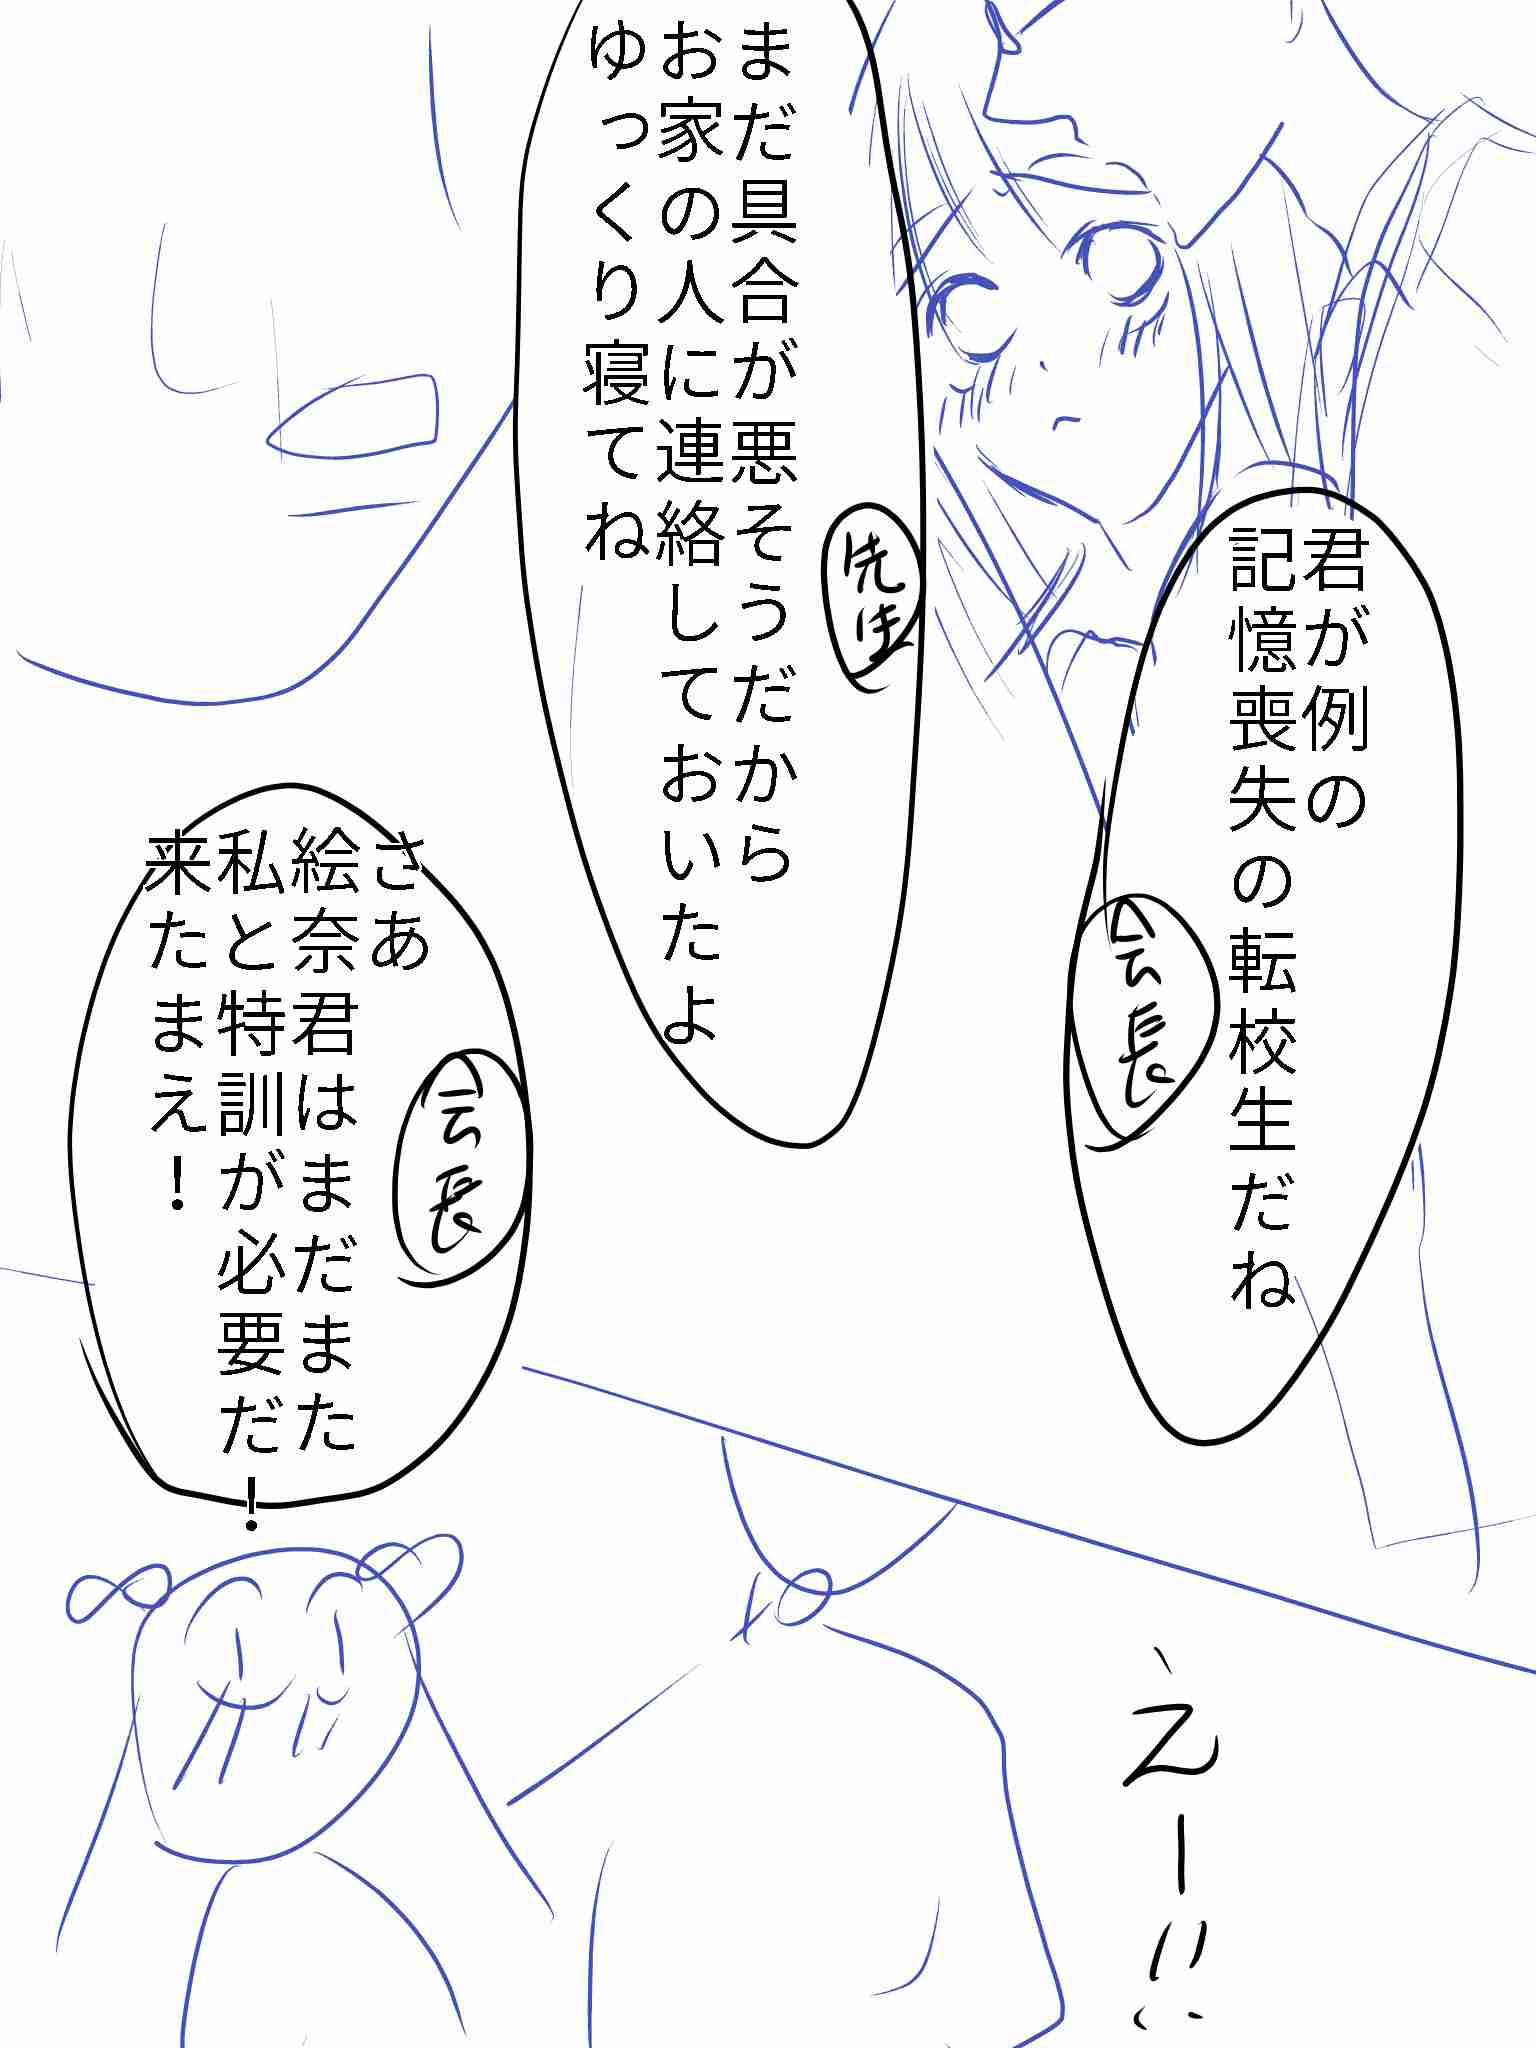 君が例の
記憶喪失の転校生だね
会長
まだ具合が悪そうだから
お家の人に連絡しておいたよ
ゆっくり寝てね
先生
さあ
絵奈君はまだまた
私と特訓が必要だ！
来たまえ！
会長
えー!!